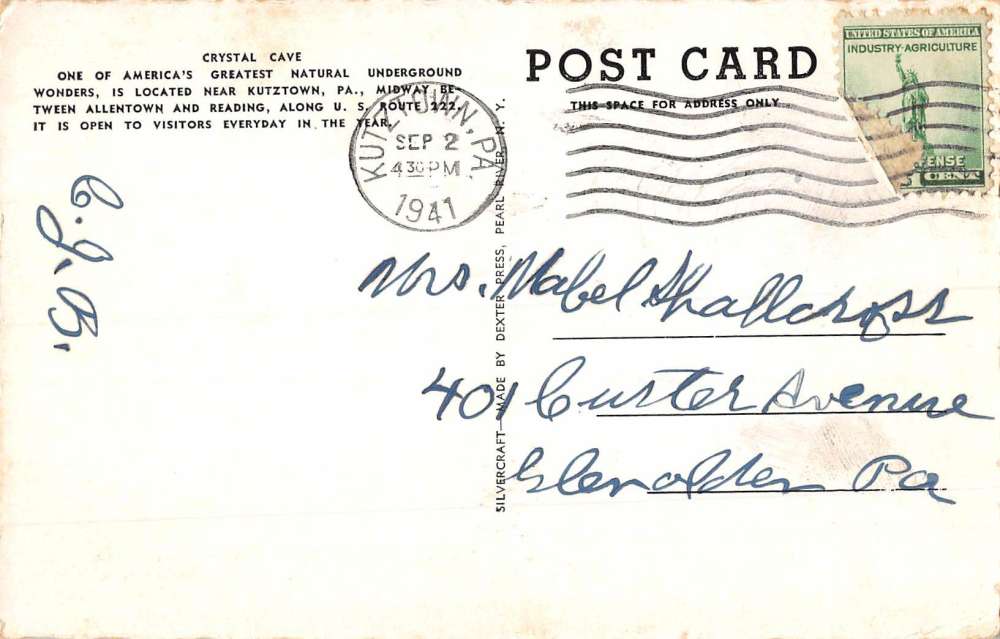 CRYSTAL CAVE
ONE OF AMERICA'S GREATEST NATURAL UNDERGROUND
WONDERS, IS LOCATED NEAR KUTZTOWN, PA., MIDWAY BE-
TWEEN ALLENTOWN AND READING, ALONG U. S. ROUTE 222.
IT IS OPEN TO VISITORS EVERYDAY IN THE YEAR.
C. J. B.
KUTZTOWN, PA.
SEP 2
4 30 PM
1941
SILVERCRAFT—MADE BY DEXTER PRESS, PEARL RIVER, N. Y.
POST CARD
THIS SPACE FOR ADDRESS ONLY
UNITED STATES OF AMERICA
INDUSTRY·AGRICULTURE
ENSE
Mrs. Mabel Shallcross
401 Custer Avenue
Glenolden Pa